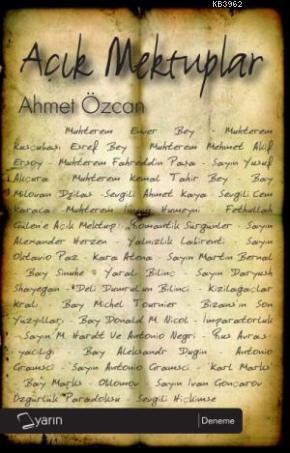 KB3962
Açık Mektuplar
Ahmet Özcan
Muhterem Enver Bey - Muhterem
Kuşçubaşı Eşref Bey - Muhterem Mehmet Akif
Ersoy - Muhterem Fahreddin Paşa - Sayın Yusuf
Akçura - Muhterem Kemal Tahir Bey - Bay
Milovan Djilas - Sevgili Ahmet Kaya - Sevgili Cem
Karaca - Muhterem Humeyni - Fethullah
Gülen'e Açık Mektup - Romantik Sürgünler - Sayın
Alexander Herzen - Yalnızlık Labirenti - Sayın
Oktavio Paz - Kara Atena - Sayın Martin Bernal
- Bay Sinuhe - Yaralı Bilinç - Sayın Daryush
Shayegan - "Deli Dumrul'un Bilinci - Kızılağaçlar
Kralı - Bay Michel Tournier - Bizans'ın Son
Yüzyılları - Bay Donald M Nicol - İmparatorluk
- Sayın M Hardt Ve Antonio Negri - Rus Avras-
yacılığı - Bay Aleksandr Dugin - Antonio
Gramsci - Sayın Antonio Gramsci - Karl Marks'
- Bay Marks - Oblomov - Sayın Ivan Goncarov -
Özgürlük Paradoksu - Sevgili Hiçkimse
yarın
Deneme